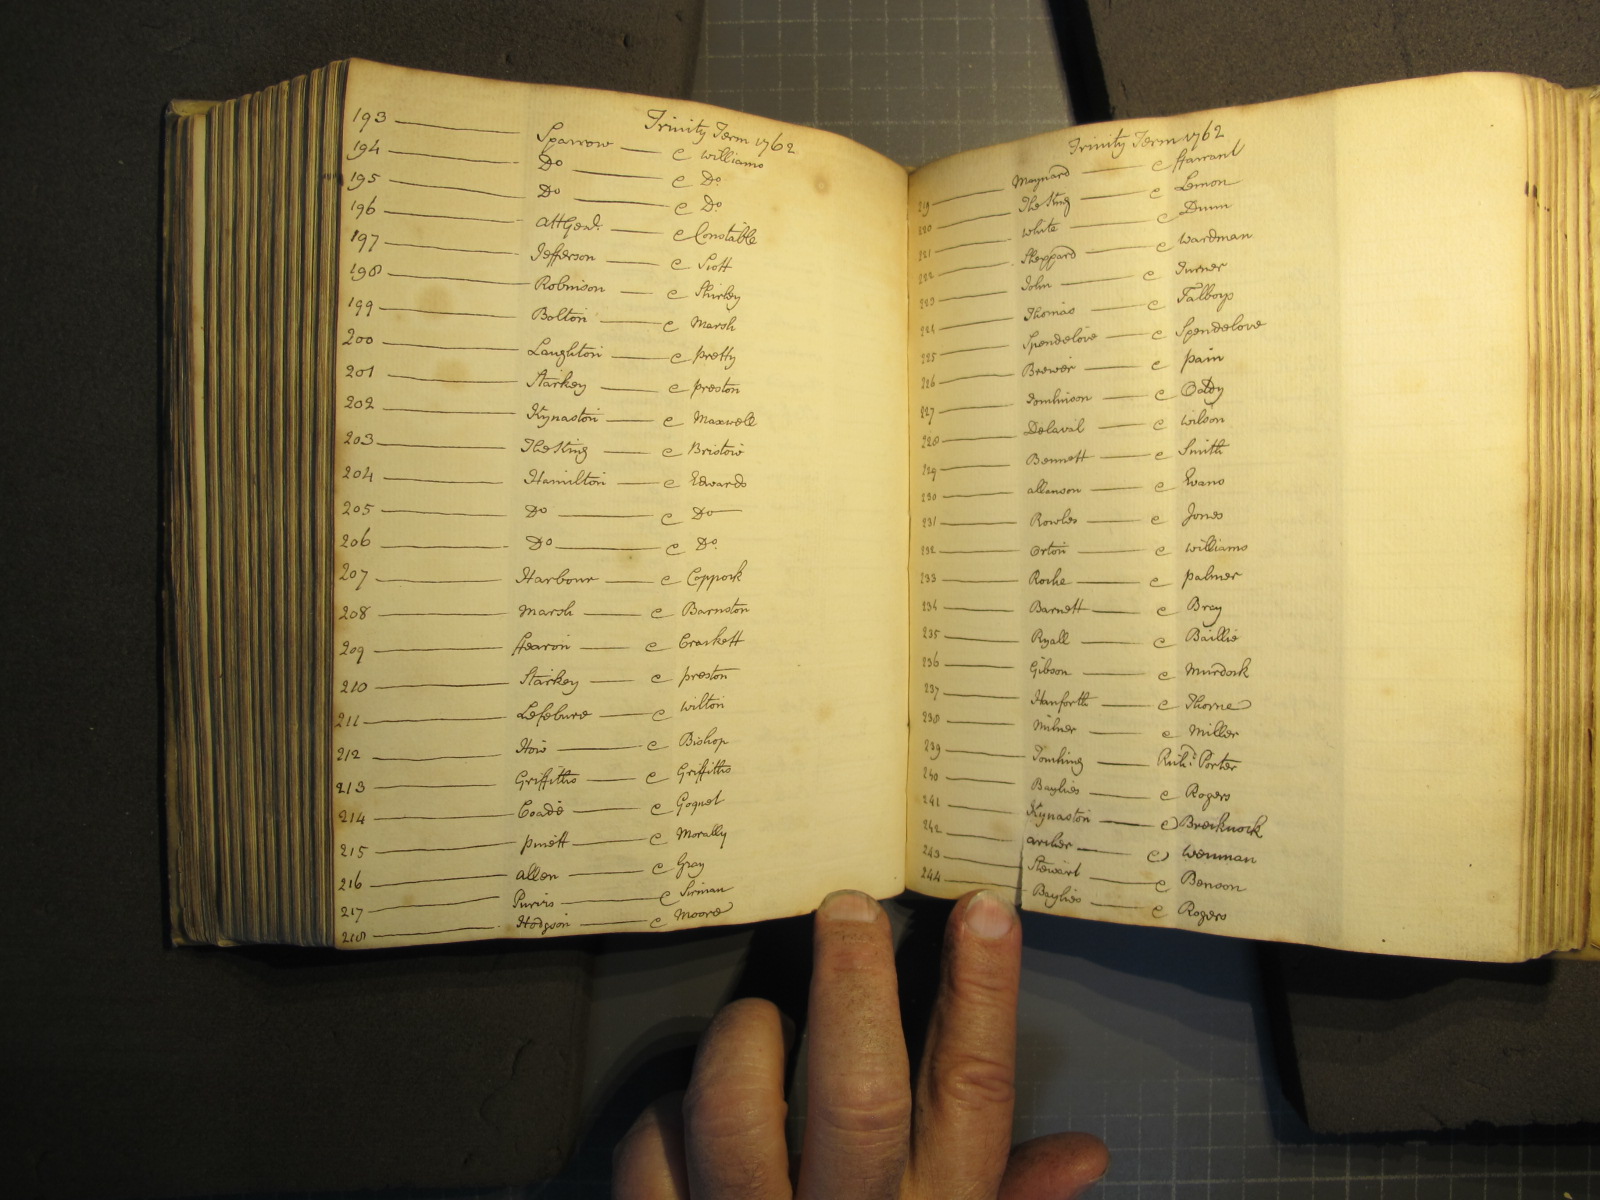 Trinity Term 1762
193 Sparrow c Williams
194 Do c Do
195 Do c Do
196 Att Genl. c Constable
197 Jefferson c Scott
198 Robinson c Shirley
199 Bolton c Marsh
200 Laughton c Pretty
201 Starkey c Preston
202 Kynaston c Maxwell
203 The King c Bristow
204 Hamilton c Edwards
205 Do c Do
206 Do c Do
207 Harbour c Coppock
208 Marsh c Barnston
209 Hearon c Crackett
210 Starkey c Preston
211 Lefebure c Wilton
212 How c Bishop
213 Griffiths c Griffiths
214 Coade c Goguel
215 Pinett c Morally
216 Allen c Gray
217 Purvis c Sirman
218 Hodgson c Moore
Trinity Term 1762
219 Maynard c Harrant
220 The King c Lemon
221 White c Dunn
222 Sheppard c Wardman
223 John c Turner
224 Thomas c Talboys
225 Spendelove c Spendelove
226 Brewer c Pain
227 Tomlinson c Oddy
228 Delaval c Wilson
229 Bennett c Smith
230 Allanson c Evans
231 Rowles c Jones
232 Orton c Williams
233 Roche c Palmer
234 Barnett c Bray
235 Ryall c Baillie
236 Gibson c Murdock
237 Hanforth c Thorne
238 Milner c Miller
239 Tomking Richd. Porter
240 Baylies c Rogers
241 Kynaston c Brecknock
242 Archer c Wenman
243 Stewart c Benson
244 Baylies c Rogers